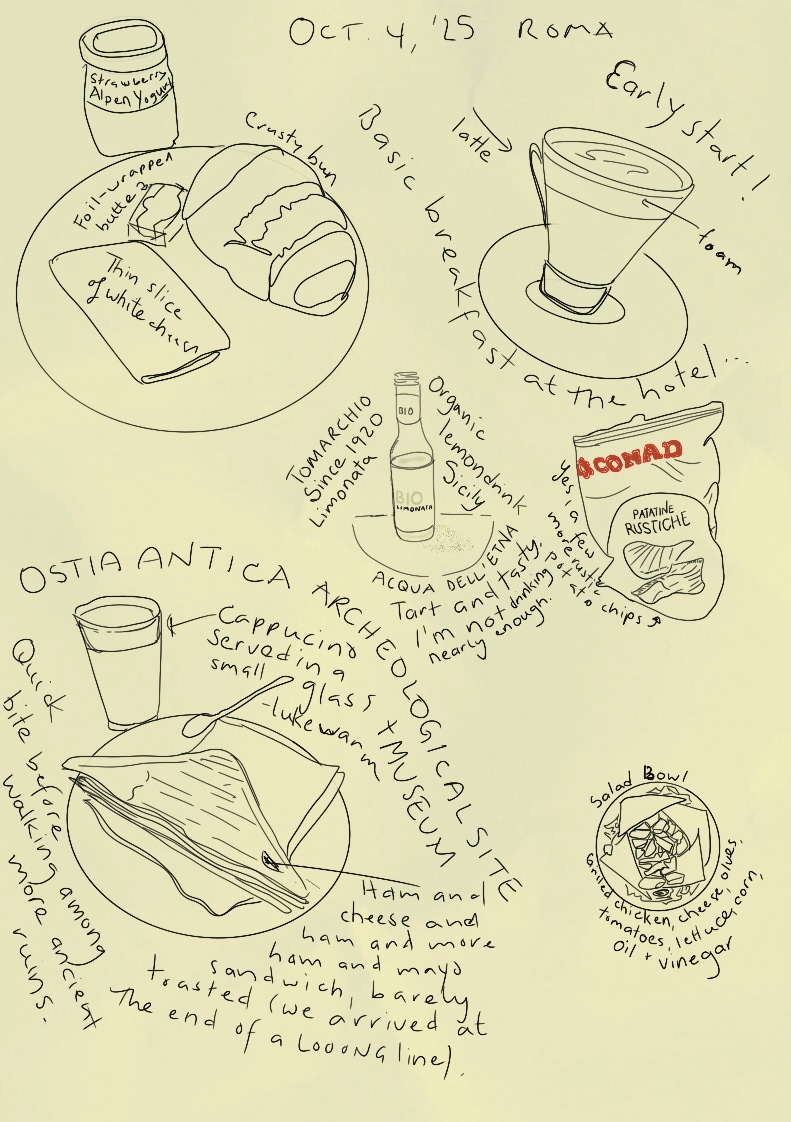 OCT. 4, '25 ROMA
Strawberry
Alpen Yogurt
Foil-wrapped
butter
Crusty bun
Thin slice
of white cheese
Early start!
latte
foam
Basic breakfast at the hotel...
TOMARCHIO
Since 1920
Limonata
BIO
BIO
LIMONATA
Organic
lemondrink
Sicily
ACQUA DELL'ETNA
Tart and tasty.
I'm not drinking
nearly enough.
CONAD
PATATINE
RUSTICHE
Yes, a few
more rustic
potato chips
OSTIA ANTICA ARCHEOLOGICAL SITE
+ MUSEUM
Cappucino
served in a
small glass
-lukewarm
Quick
bite before
walking among
more ancient
ruins.
Ham and
cheese and
ham and more
ham and mayo
sandwich, barely
toasted (we arrived at
The end of a LOOONG line).
Salad Bowl
Grilled chicken, cheese, olives,
tomatoes, lettuce, corn,
oil + vinegar